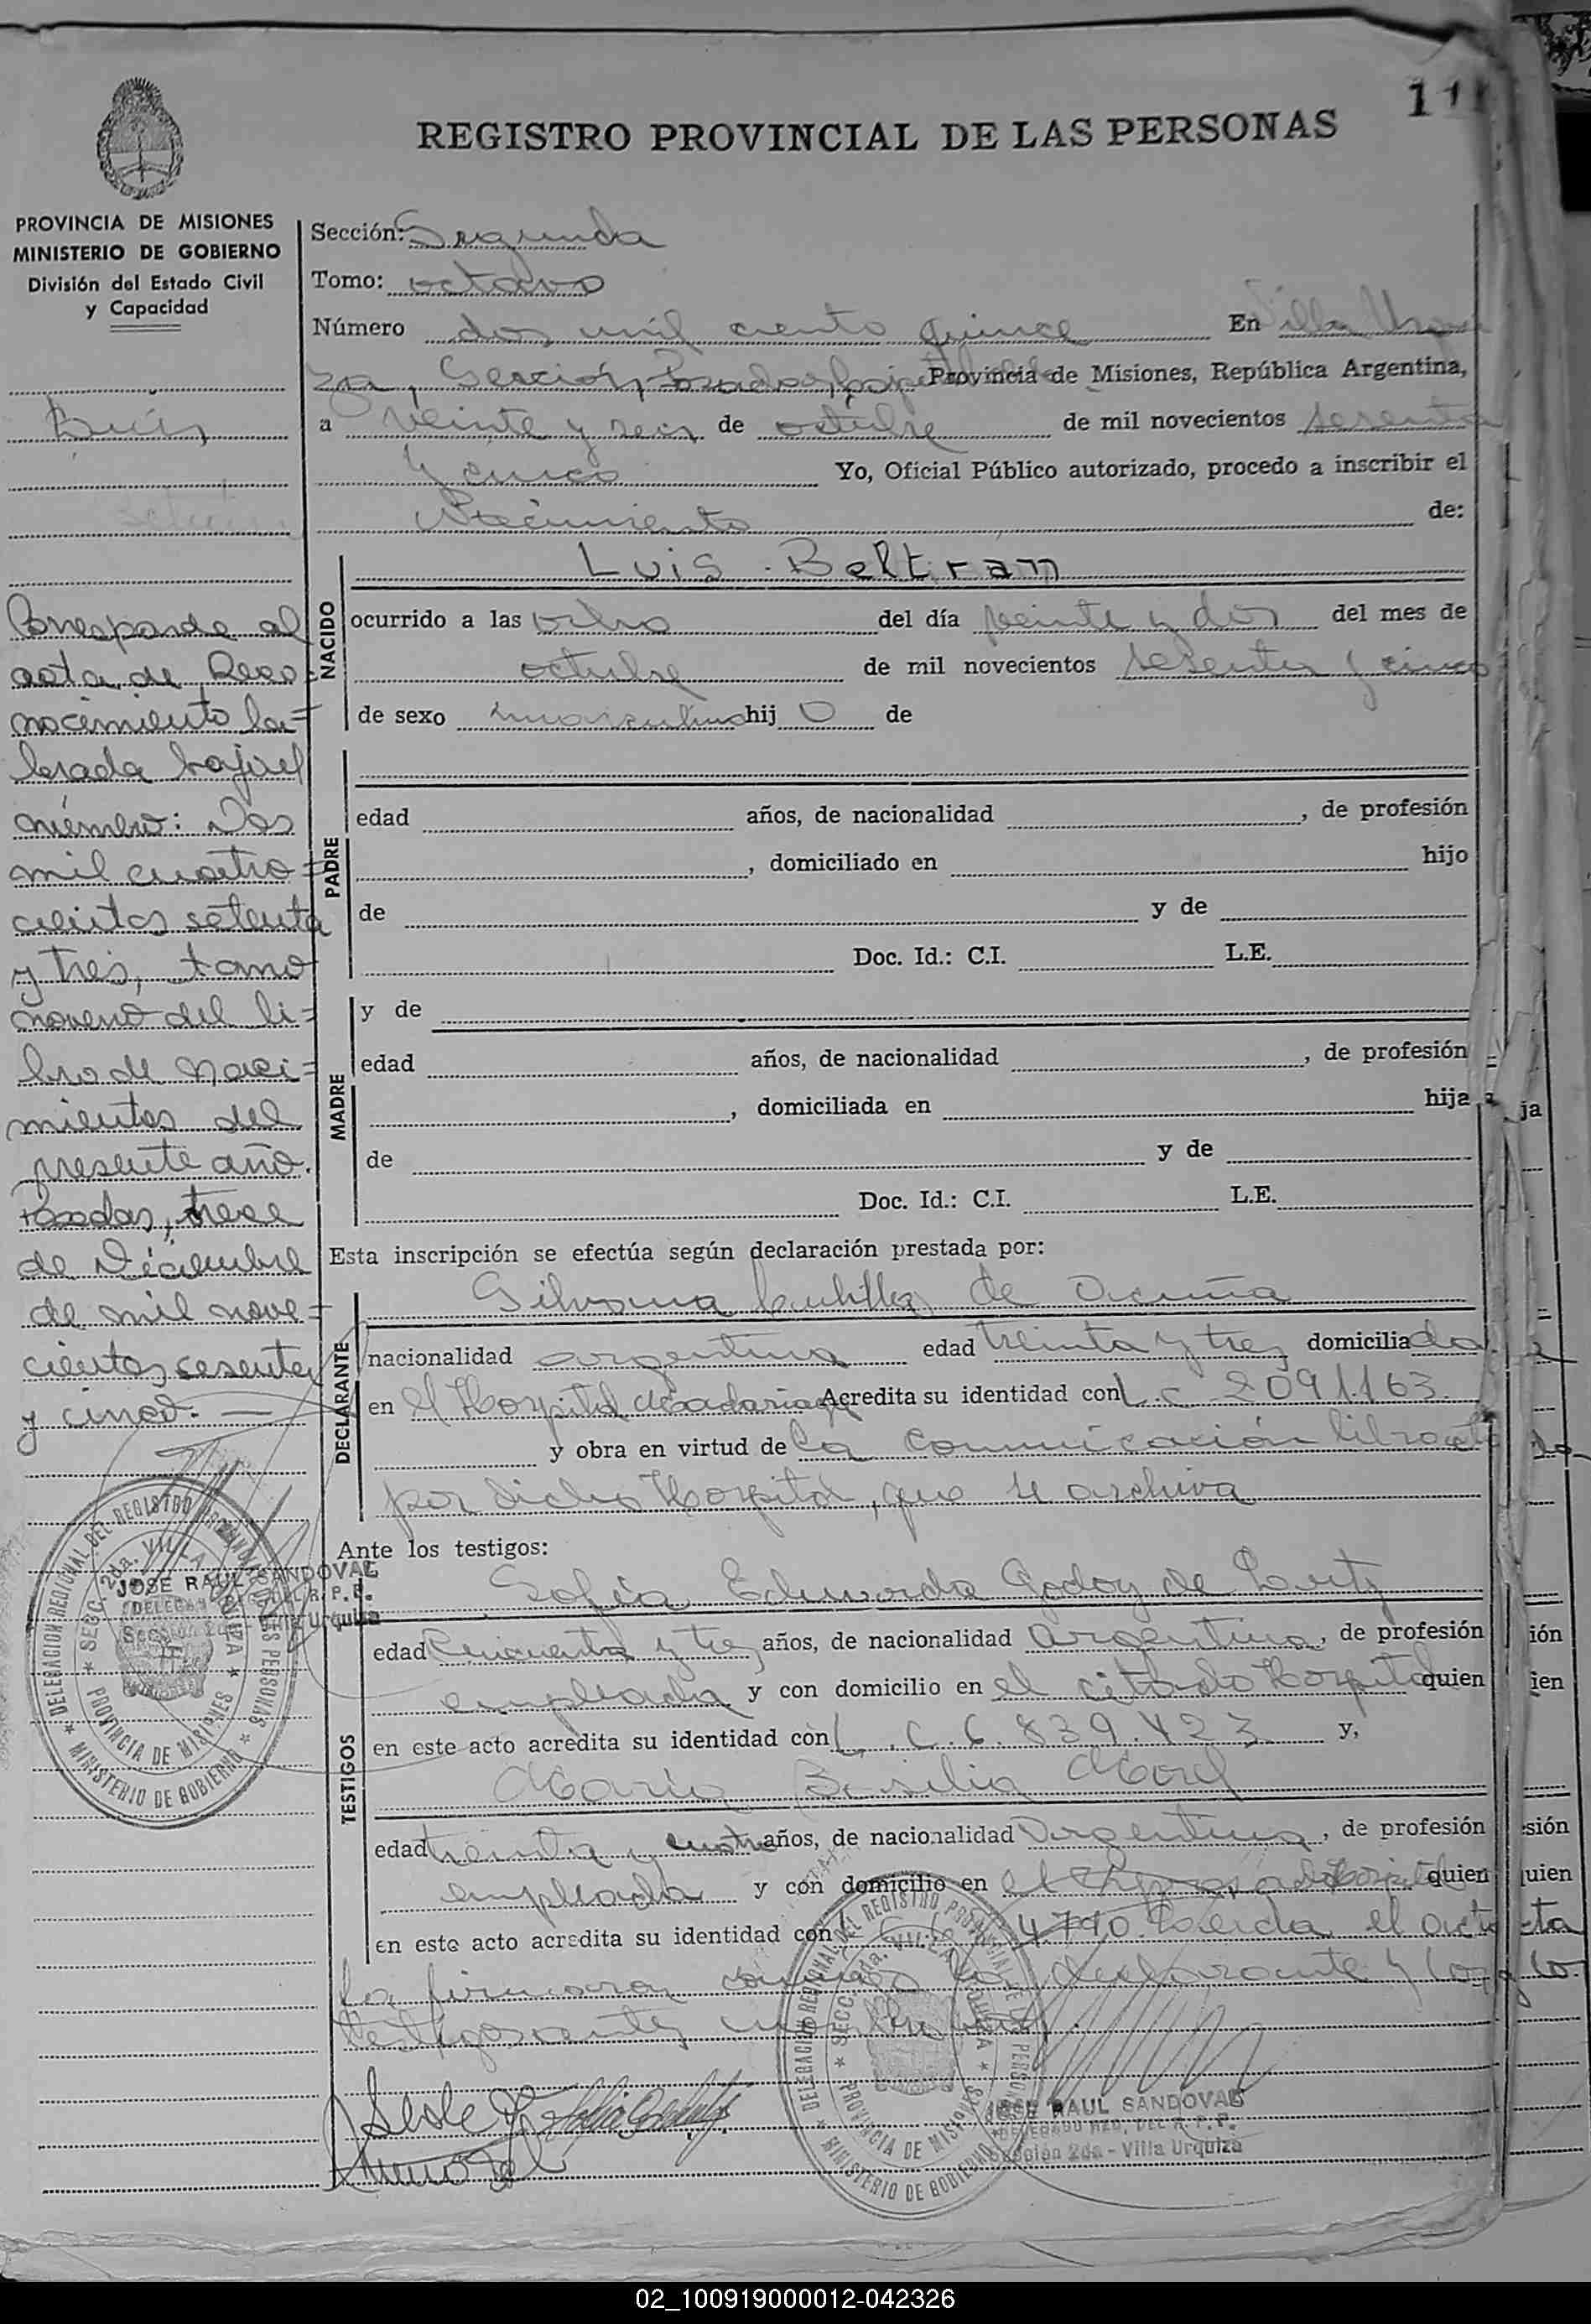 11
REGISTRO PROVINCIAL DE LAS PERSONAS
PROVINCIA DE MISIONES
MINISTERIO DE GOBIERNO
División del Estado Civil
y Capacidad
Luis
Beltrán
Corresponde al
acta de Reco=
nocimiento la=
brada bajo el
número: Dos
mil cuatro=
cientos setenta
y tres, tomo
noveno del li=
bro de naci=
mientos del
presente año.
Posadas, trece
de Diciembre
de mil nove=
cientos sesenta
y cinco.—
DELEGACION REGIONAL DEL REGISTRO PROVINCIAL DE LAS PERSONAS
SECC. 2da. VILLA URQUIZA
PROVINCIA DE MISIONES
MINISTERIO DE GOBIERNO
JOSE RAUL SANDOVAL
Sección: Segunda
Tomo: octavo
Número dos mil ciento quince En Villa Urqui
za, Sección, Posadas, Capital Provincia de Misiones, República Argentina,
a veinte y seis de octubre de mil novecientos sesenta
y cinco Yo, Oficial Público autorizado, procedo a inscribir el
Nacimiento de:
NACIDO
Luis Beltrán
ocurrido a las ocho del día veinte y dos del mes de
octubre de mil novecientos sesenta y cinco
de sexo masculino hij o de
PADRE
edad años, de nacionalidad , de profesión
, domiciliado en hijo
de y de
Doc. Id.: C.I. L.E.
MADRE
y de
edad años, de nacionalidad , de profesión
, domiciliada en hija
de y de
Doc. Id.: C.I. L.E.
Esta inscripción se efectúa según declaración prestada por:
DECLARANTE
Silvana de Acuña
nacionalidad argentina edad treinta y tres domiciliada
en el Hospital Madariaga Acredita su identidad con L.C. 2091.163
y obra en virtud de la comunicación
por dicho Hospital, que se archiva
Ante los testigos:
TESTIGOS
Sofía Eduarda Godoy de
edad Cincuenta y tres años, de nacionalidad argentina, de profesión
empleada y con domicilio en el citado Hospital quien
en este acto acredita su identidad con L.C. 6.839.423 y,
María Basilia Morel
edad treinta y cuatro años, de nacionalidad Argentina, de profesión
empleada y con domicilio en el Hospital quien
en este acto acredita su identidad con 4790. Leída el acta
la firmaron conmigo la declarante y los
testigos
DELEGACION REGIONAL DEL REGISTRO PROVINCIAL DE LAS PERSONAS
SECC. 2da. VILLA URQUIZA
PROVINCIA DE MISIONES
MINISTERIO DE GOBIERNO
JOSE RAUL SANDOVAL
DELEGADO REG. DEL R. P. P.
Sección 2da - Villa Urquiza
ja
ión
ien
sión
quien
02_100919000012-042326